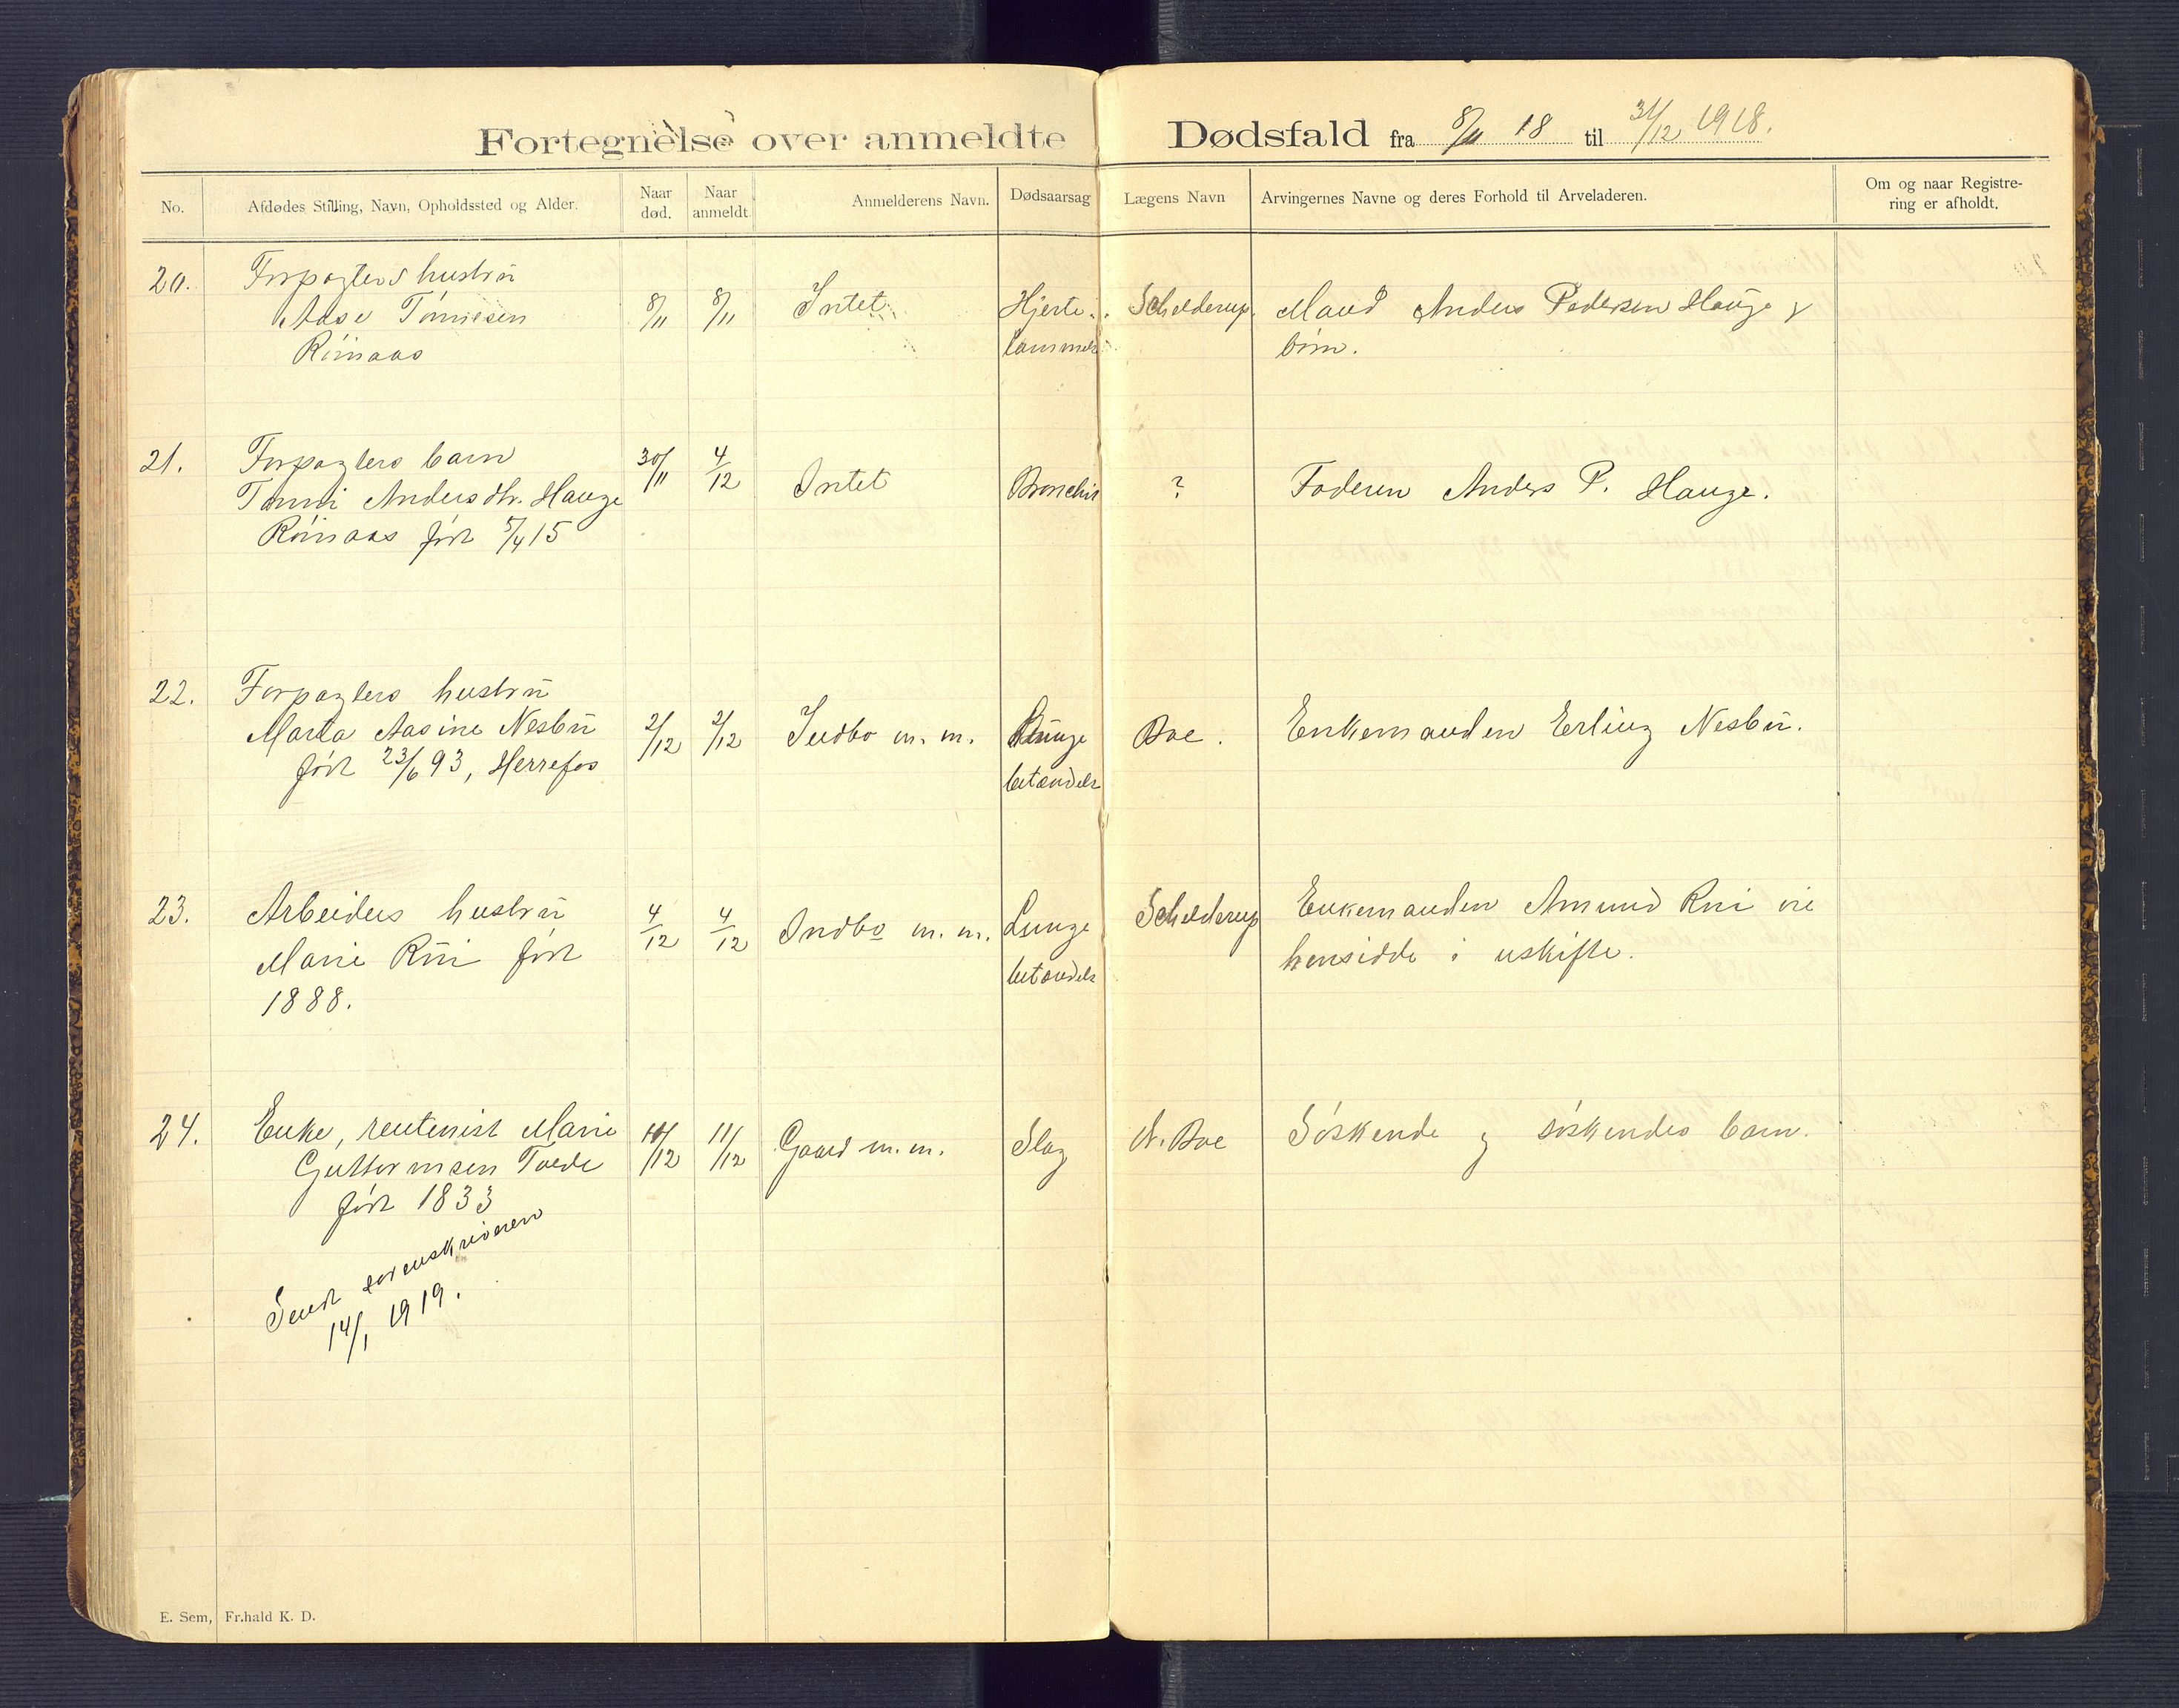 Fortegnelse over anmeldte Dødsfald fra 8/11 18 til 31/12 1918.
No.
Afdødes Stilling, Navn, Opholdssted og Alder.
Naar død.
Naar anmeldt
Anmelderens Navn.
Dødsaarsag
Lægens Navn
Arvingernes Navne og deres Forhold til Arveladeren.
Om og naar Registre-
ring er afholdt.
20. Forpagters hustru
Aase Tønnesen 8/11 8/11 Intet Hjerte- Schelderup. Mand Anders Pedersen Hauge &
lammels børn.
21. Forpagters barn 30/11 4/12
Tanni Andersdtr. Hauge Intet Bronchit ? Faderen Anders P. Hauge.
født 5/4 15
22. Forpagters hustru
Marta Aasine Nesbu 2/12 2/12 Indbo m. m. Lunge Boe. Enkemanden Erling Nesbu.
født 23/6 93, Herrefos betændels
23. Arbeiders hustru 4/12 4/12 Indbo m. m. Lunge Schelderup Enkemanden Amund Rui vil
Marie Rui født betændels hensidde i uskifte.
1888.
24. Enke, rentenist Marie 10/12 11/12 Gaard m. m. Slag N. Boe Søskende og søskendes barn.
Guttormsen Tvede
født 1833
Sendt sorenskriveren
14/1 1919.
E. Sem, Fr.hald K. D.